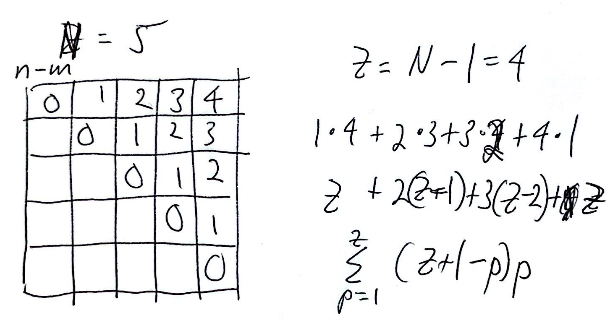 N = 5
n-m
0 1 2 3 4
0 1 2 3
0 1 2
0 1
0
z = N - 1 = 4
1·4 + 2·3 + 3·2 + 4·1
z + 2(z-1) + 3(z-2) + z
z
∑ (z+1-p)p
p=1